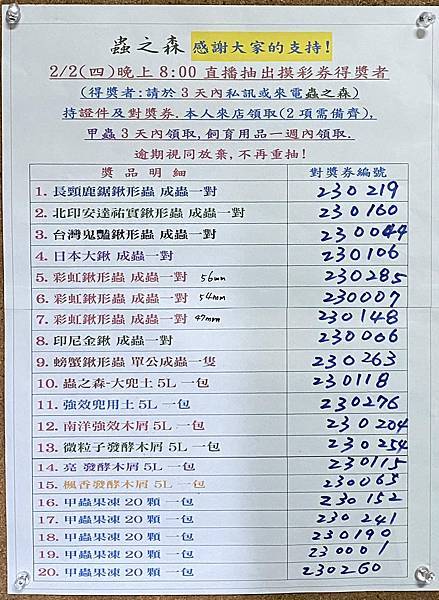 蟲之森 感謝大家的支持!
2/2(四)晚上 8:00 直播抽出摸彩券得獎者
(得獎者:請於 3 天內私訊或來電蟲之森)
持證件及對獎券. 本人來店領取(2 項需備齊),
甲蟲 3 天內領取, 飼育用品一週內領取.
逾期視同放棄, 不再重抽!
獎品明細 對獎券編號
1. 長頸鹿鋸鍬形蟲 成蟲一對 230219
2. 北印安達祐實鍬形蟲 成蟲一對 230160
3. 台灣鬼豔鍬形蟲 成蟲一對 230044
4. 日本大鍬 成蟲一對 230106
5. 彩虹鍬形蟲 成蟲一對 56mm 230285
6. 彩虹鍬形蟲 成蟲一對 54mm 230007
7. 彩虹鍬形蟲 成蟲一對 47mm 230148
8. 印尼金鍬 成蟲一對 230006
9. 螃蟹鍬形蟲 單公成蟲一隻 230263
10. 蟲之森-大兜土 5L 一包 230118
11. 強效兜用土 5L 一包 230276
12. 南洋強效木屑 5L 一包 230204
13. 微粒子發酵木屑 5L 一包 230254
14. 亮 發酵木屑 5L 一包 230115
15. 楓香發酵木屑 5L 一包 230065
16. 甲蟲果凍 20 顆 一包 230152
17. 甲蟲果凍 20 顆 一包 230241
18. 甲蟲果凍 20 顆 一包 230190
19. 甲蟲果凍 20 顆 一包 230001
20. 甲蟲果凍 20 顆 一包 230260